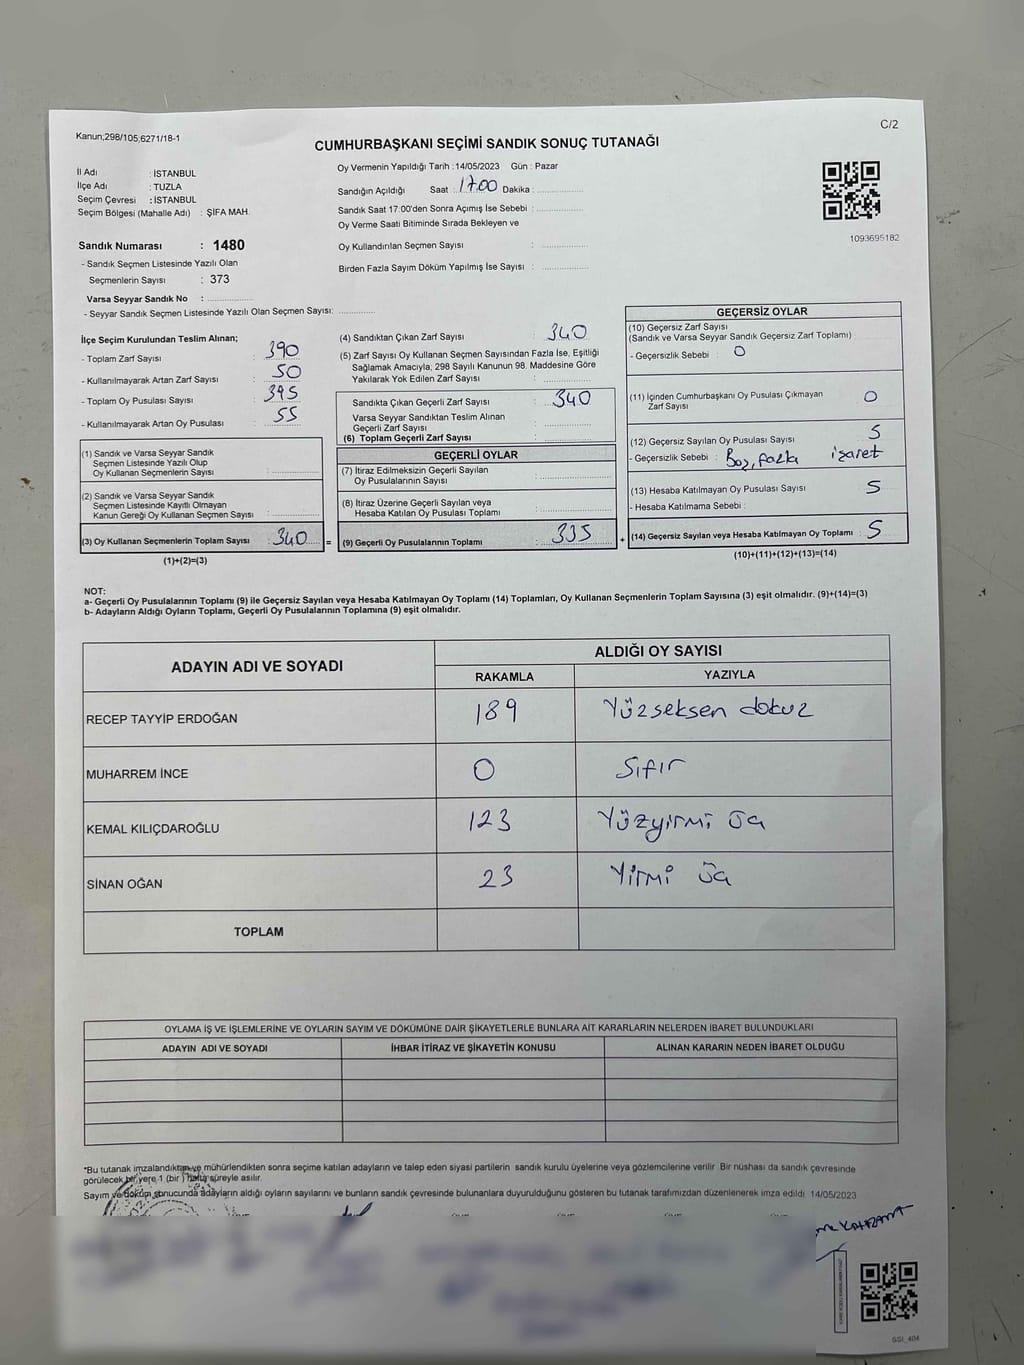 Kanun;298/105;6271/18-1
C/2
CUMHURBAŞKANI SEÇİMİ SANDIK SONUÇ TUTANAĞI
İl Adı : İSTANBUL
İlçe Adı : TUZLA
Seçim Çevresi : İSTANBUL
Seçim Bölgesi (Mahalle Adı) : ŞİFA MAH.
Sandık Numarası : 1480
- Sandık Seçmen Listesinde Yazılı Olan
Seçmenlerin Sayısı : 373
Varsa Seyyar Sandık No :
- Seyyar Sandık Seçmen Listesinde Yazılı Olan Seçmen Sayısı:
Oy Vermenin Yapıldığı Tarih : 14/05/2023 Gün : Pazar
Sandığın Açıldığı Saat : 17.00 Dakika :
Sandık Saat 17:00'den Sonra Açımış İse Sebebi :
Oy Verme Saati Bitiminde Sırada Bekleyen ve
Oy Kullandırılan Seçmen Sayısı :
Birden Fazla Sayım Döküm Yapılmış İse Sayısı :
1093695182
İlçe Seçim Kurulundan Teslim Alınan;
- Toplam Zarf Sayısı : 390
- Kullanılmayarak Artan Zarf Sayısı : 50
- Toplam Oy Pusulası Sayısı : 395
- Kullanılmayarak Artan Oy Pusulası : 55
(1) Sandık ve Varsa Seyyar Sandık
Seçmen Listesinde Yazılı Olup
Oy Kullanan Seçmenlerin Sayısı :
(2) Sandık ve Varsa Seyyar Sandık
Seçmen Listesinde Kayıtlı Olmayan
Kanun Gereği Oy Kullanan Seçmen Sayısı :
(3) Oy Kullanan Seçmenlerin Toplam Sayısı : 340 =
(1)+(2)=(3)
(4) Sandıktan Çıkan Zarf Sayısı : 340
(5) Zarf Sayısı Oy Kullanan Seçmen Sayısından Fazla İse, Eşitliği
Sağlamak Amacıyla, 298 Sayılı Kanunun 98. Maddesine Göre
Yakılarak Yok Edilen Zarf Sayısı :
Sandıkta Çıkan Geçerli Zarf Sayısı : 340
Varsa Seyyar Sandıktan Teslim Alınan
Geçerli Zarf Sayısı :
(6) Toplam Geçerli Zarf Sayısı :
GEÇERLİ OYLAR
(7) İtiraz Edilmeksizin Geçerli Sayılan
Oy Pusulalarının Sayısı :
(8) İtiraz Üzerine Geçerli Sayılan veya
Hesaba Katılan Oy Pusulası Toplamı :
(9) Geçerli Oy Pusulalarının Toplamı : 335 +
GEÇERSİZ OYLAR
(10) Geçersiz Zarf Sayısı
(Sandık ve Varsa Seyyar Sandık Geçersiz Zarf Toplamı)
- Geçersizlik Sebebi : 0
(11) İçinden Cumhurbaşkanı Oy Pusulası Çıkmayan
Zarf Sayısı 0
(12) Geçersiz Sayılan Oy Pusulası Sayısı 5
- Geçersizlik Sebebi : Boş, fazla işaret
(13) Hesaba Katılmayan Oy Pusulası Sayısı 5
- Hesaba Katılmama Sebebi :
(14) Geçersiz Sayılan veya Hesaba Katılmayan Oy Toplamı : 5
(10)+(11)+(12)+(13)=(14)
NOT:
a- Geçerli Oy Pusulalarının Toplamı (9) ile Geçersiz Sayılan veya Hesaba Katılmayan Oy Toplamı (14) Toplamları, Oy Kullanan Seçmenlerin Toplam Sayısına (3) eşit olmalıdır. (9)+(14)=(3)
b- Adayların Aldığı Oyların Toplamı, Geçerli Oy Pusulalarının Toplamına (9) eşit olmalıdır.
ADAYIN ADI VE SOYADI
ALDIĞI OY SAYISI
RAKAMLA YAZIYLA
RECEP TAYYİP ERDOĞAN 189 Yüzseksen dokuz
MUHARREM İNCE 0 Sıfır
KEMAL KILIÇDAROĞLU 123 Yüzyirmi üç
SİNAN OĞAN 23 Yirmi üç
TOPLAM
OYLAMA İŞ VE İŞLEMLERİNE VE OYLARIN SAYIM VE DÖKÜMÜNE DAİR ŞİKAYETLERLE BUNLARA AİT KARARLARIN NELERDEN İBARET BULUNDUKLARI
ADAYIN ADI VE SOYADI İHBAR İTİRAZ VE ŞİKAYETİN KONUSU ALINAN KARARIN NEDEN İBARET OLDUĞU
*Bu tutanak imzalandıktan ve mühürlendikten sonra seçime katılan adayların ve talep eden siyasi partilerin sandık kurulu üyelerine veya gözlemcilerine verilir. Bir nüshası da sandık çevresinde
görülecek bir yere 1 (bir ) hafta süreyle asılır.
Sayım ve döküm sonucunda adayların aldığı oyların sayılarını ve bunların sandık çevresinde bulunanlara duyurulduğunu gösteren bu tutanak tarafımızdan düzenlenerek imza edildi. 14/05/2023
GSI_404